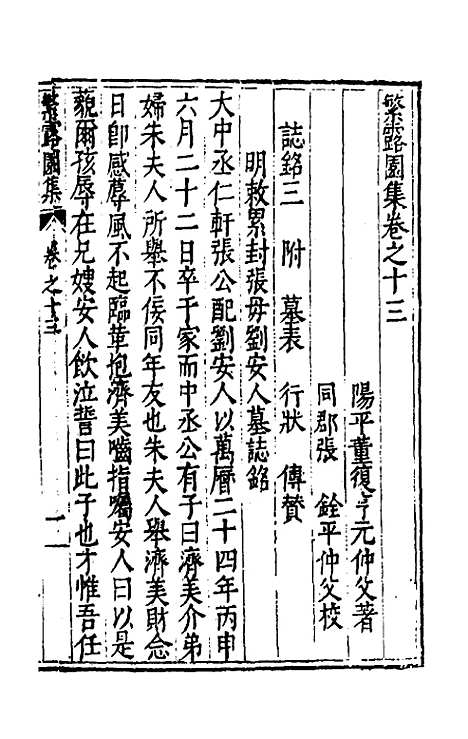 繁露園集卷之十三
陽平董復亨元仲父著
同郡張　銓平仲父校
誌銘三　附　墓表　行狀　傳贊
明敕累封張母劉安人墓誌銘
大中丞仁軒張公配劉安人以萬曆二十四年丙申
六月二十二日卒于家而中丞公有子曰濟美介弟
婦朱夫人所舉不佞同年友也朱夫人舉濟美財念
日卽感蓐風不起臨革抱濟美嚙指囑安人曰以是
藐爾孩辱在兄嫂安人飲泣誓曰此子也才惟吾任
繁露園集
卷之十三
一